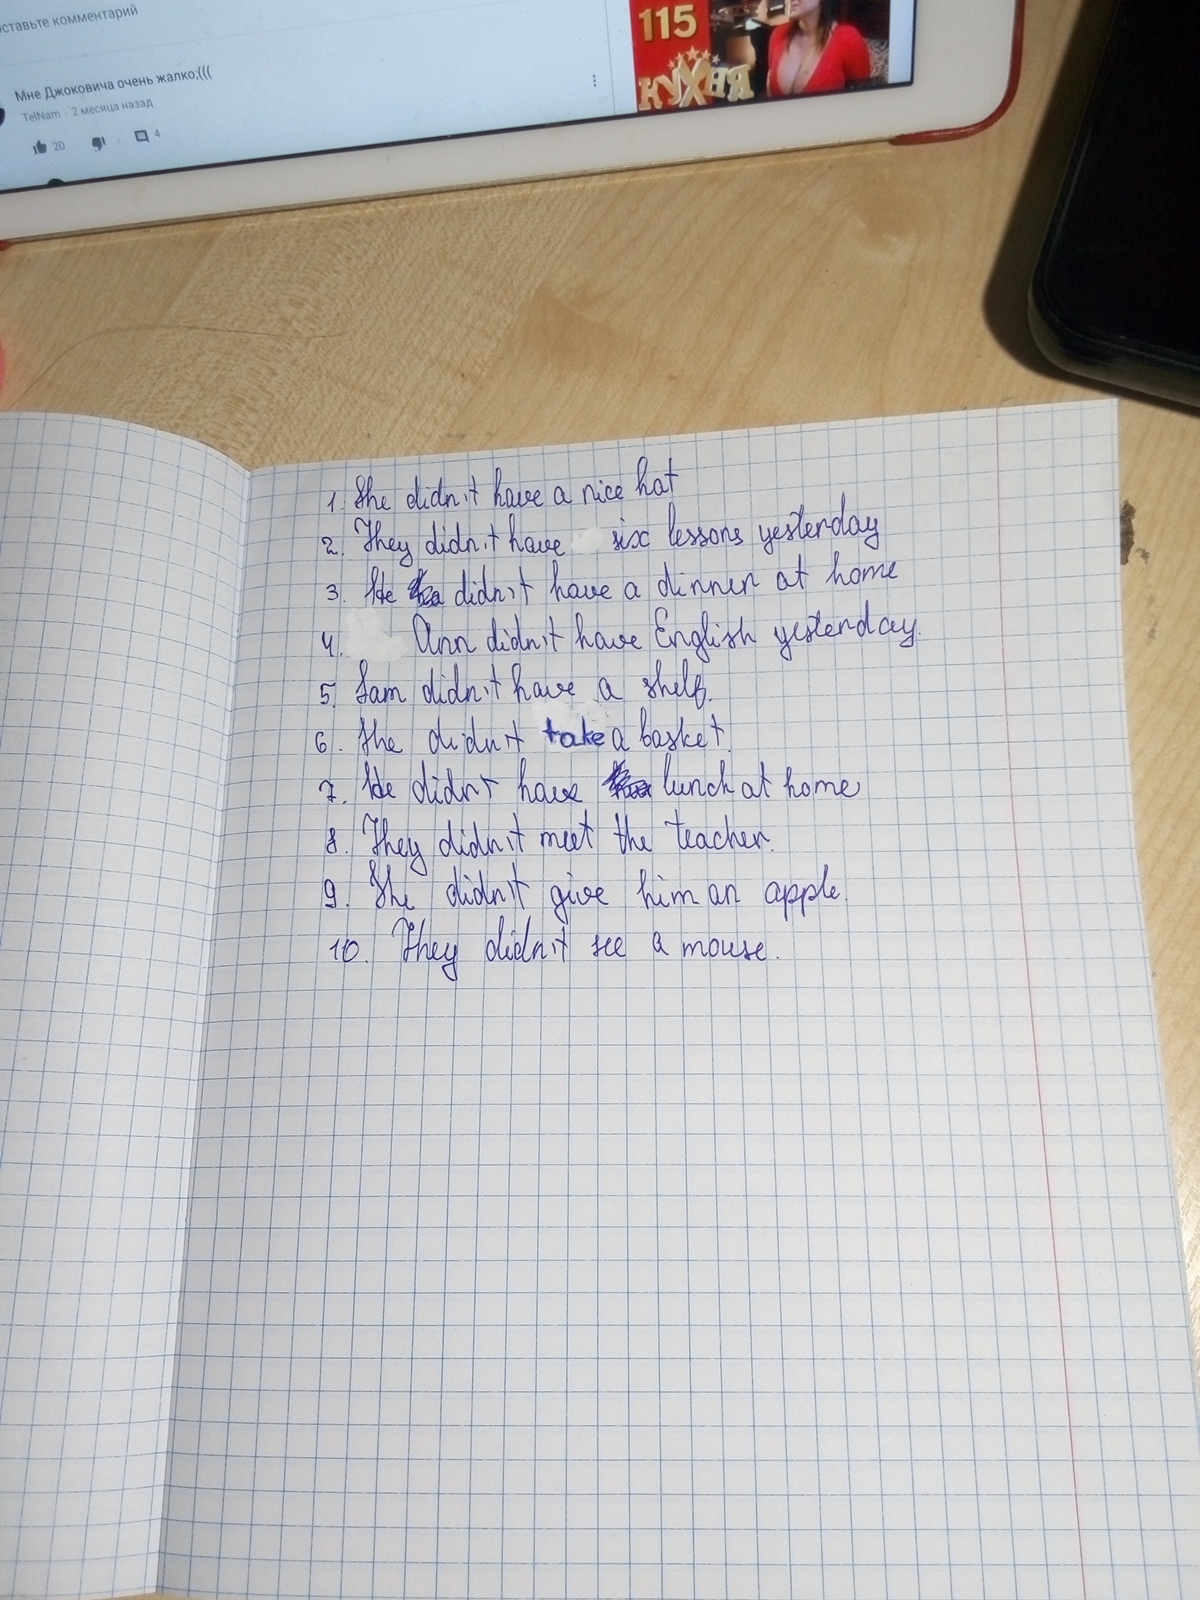 оставьте комментарий
115
КУХНЯ
Мне Джоковича очень жалко:(((
TelNam · 2 месяца назад
20 4
1. She didn't have a nice hat
2. They didn't have six lessons yesterday
3. He didn't have a dinner at home
4. Ann didn't have English yesterday.
5. Sam didn't have a shelf.
6. She didn't take a basket.
7. He didn't have lunch at home
8. They didn't meet the teacher.
9. She didn't give him an apple.
10. They didn't see a mouse.